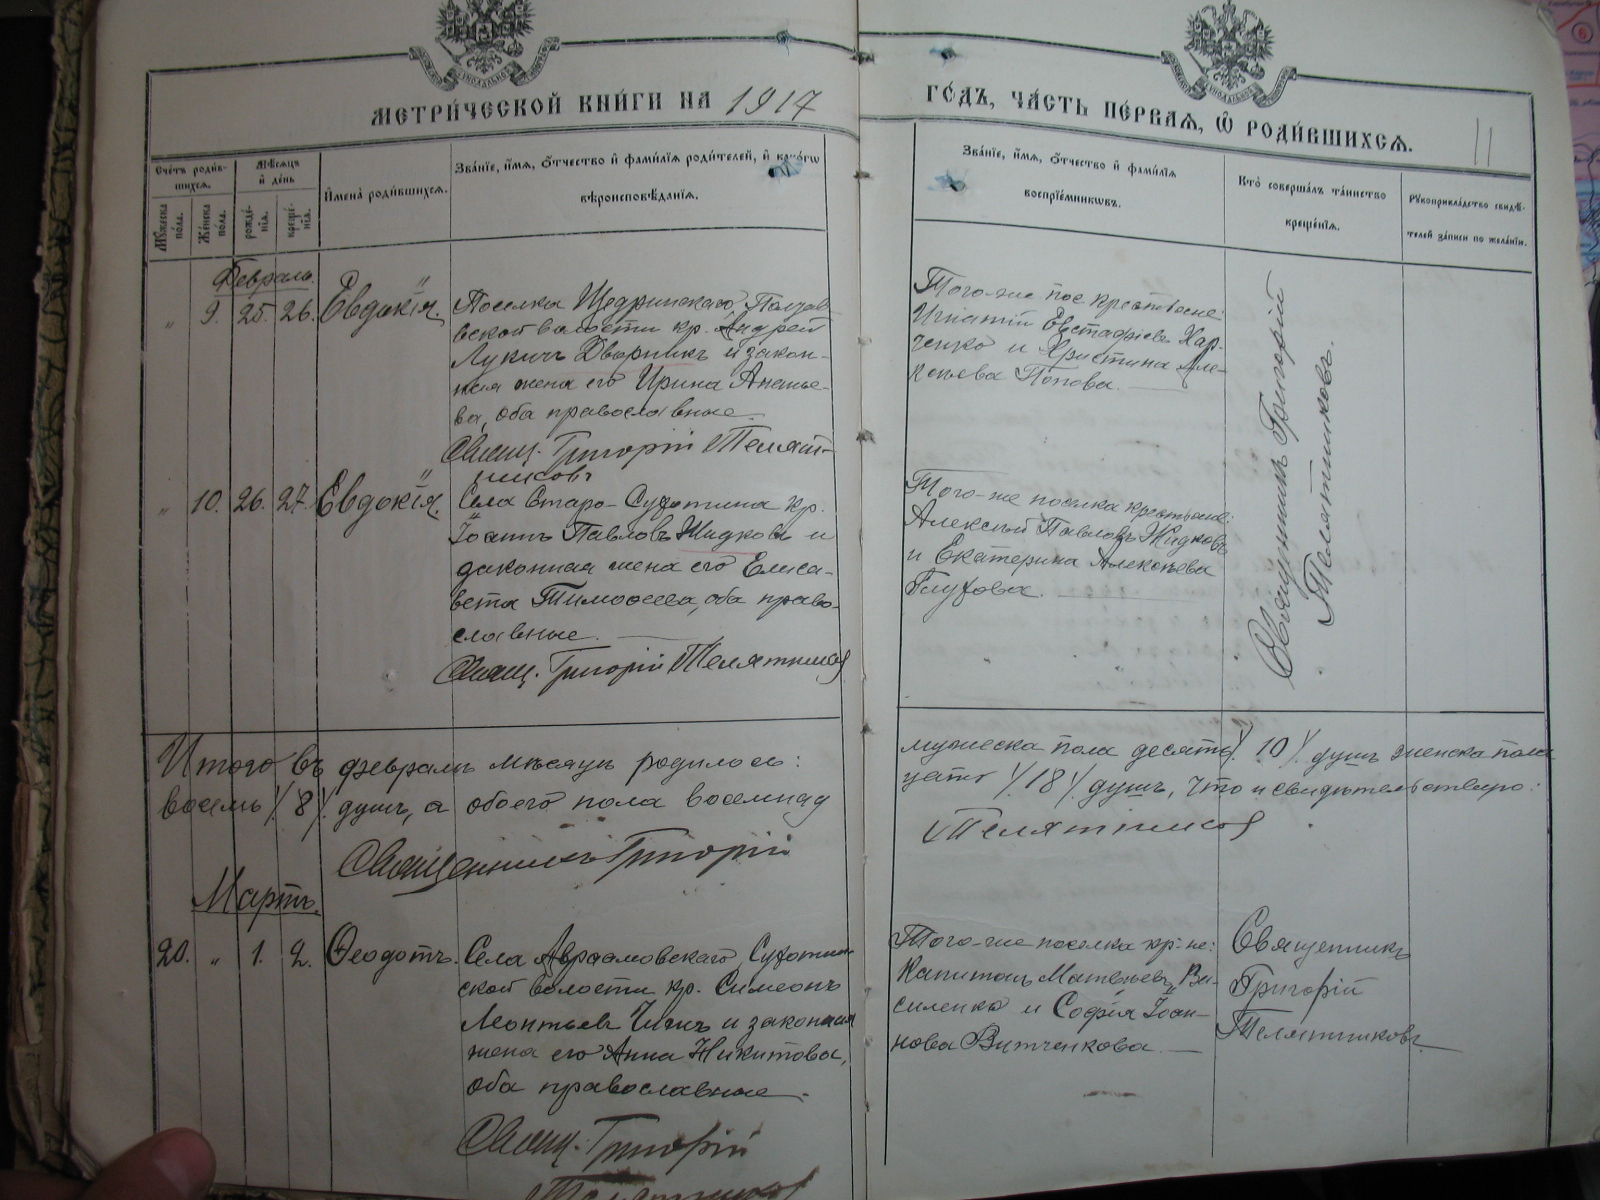 МЕТРИ́ЧЕСКОЙ КНИ́ГИ НА 1917
ГО́ДЪ, ЧА́СТЬ ПЕ́РВАѦ, Ѽ РОДИ́ВШИХСѦ.
11
Сче́тъ роди́в-
шихсѧ.
Мѣ́сѧцъ
и҆ де́нь
И҆мена̀ роди́вшихсѧ.
Зва́нїе, и҆́мѧ, ѻ҆́тчество и҆ фами́лїѧ роди́телей, и҆ како́гѡ
вѣроисповѣ́данїѧ.
Мꙋ́жеска
по́ла.
Же́нска
по́ла.
рожде́-
нїѧ.
креще́-
нїѧ.
Зва́нїе, и҆́мѧ, ѻ҆́тчество и҆ фами́лїѧ
воспрїе́мникѡвъ.
Кто̀ соверша́лъ та́инство
креще́нїѧ.
Рꙋкоприкла́дство свидѣ́-
телей за́писи по жела́нїю.
Февраль.
" 9. 25. 26. Евдокія.
Поселка Щедринскаго,
вской волости кр. Андрей
Лукичъ Дворникъ и закон-
ная жена его Ирина Ананье-
ва, оба православные.
Свящ. Григорій Телят-
никовъ
Того-же пос. крестьяне:
Игнатій Евстафіевъ Хар-
ченко и Христина Але-
ксѣева Попова.
Священникъ Григорій
Телятниковъ.
" 10. 26. 27. Евдокія.
Села Старо-Сухотина кр.
Іоаннъ Павловъ Жидковъ и
законная жена его Елиса-
вета Тимоѳеева, оба право-
славные.
Свящ. Григорій Телятниковъ
Того-же поселка крестьяне:
Алексѣй Павловъ Жидковъ
и Екатерина Алексѣева
Глухова.
Итого въ февралѣ мѣсяцѣ родилось:
мужеска пола десять /10/ душъ женска пола
восемь /8/ душъ, а обоего пола восемнад
цать /18/ душъ, что и свидѣтельствую:
Священникъ Григорій
Телятниковъ
Мартъ.
20. " 1. 2. Ѳеодотъ.
Села Авраамовскаго, Сухотин-
ской волости кр. Симеонъ
Леонтьевъ и законная
жена его Анна Никитова,
оба православные.
Свящ. Григорій
Телятниковъ
Того-же поселка кр-не:
Капитонъ Матвѣевъ Ва-
силенко и Софія Іоан-
нова Витченкова.
Священникъ
Григорій
Телятниковъ.